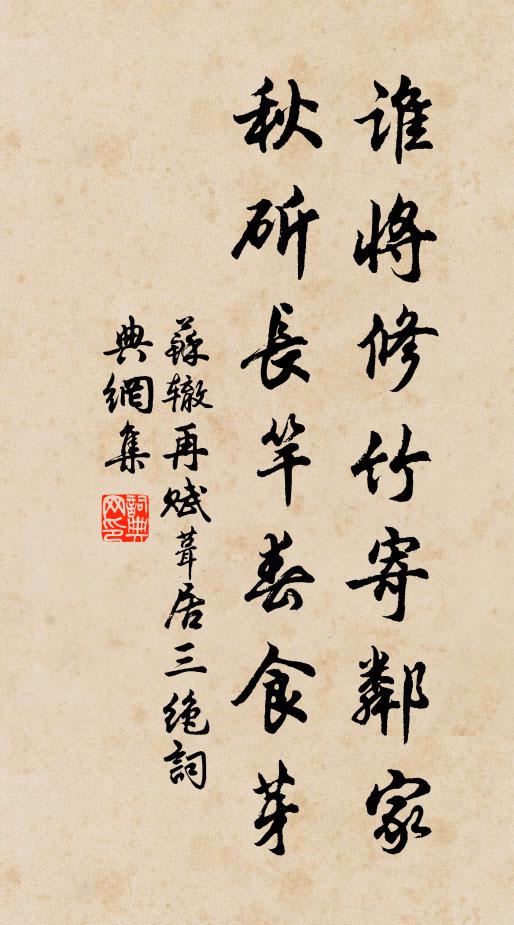 谁将修竹寄鄰家
秋斫長竿春食芽
蘇辙再赋葺居三绝詞
典網集
詞典网印